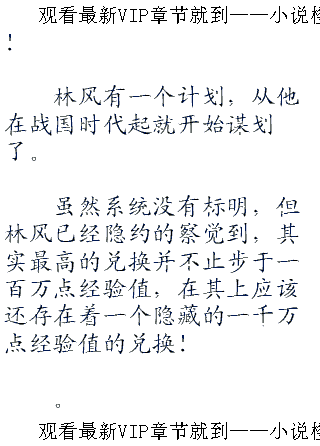 观看最新VIP章节就到——小说
!
林风有一个计划，从他
在战国时代起就开始谋划
了。
虽然系统没有标明，但
林风已经隐约的察觉到，其
实最高的兑换并不止步于一
百万点经验值，在其上应该
还存在着一个隐藏的一千万
点经验值的兑换！
。
观看最新VIP章节就到——小说